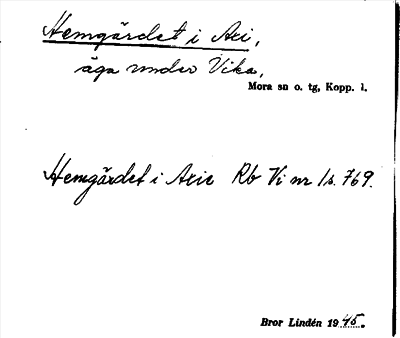 Hemgärdet i Axi,
äga under Vika,
Mora sn o. tg, Kopp. l.
Hemgärdet i Axie Rb Vi nr 1 s. 769.
Bror Lindén 1945.